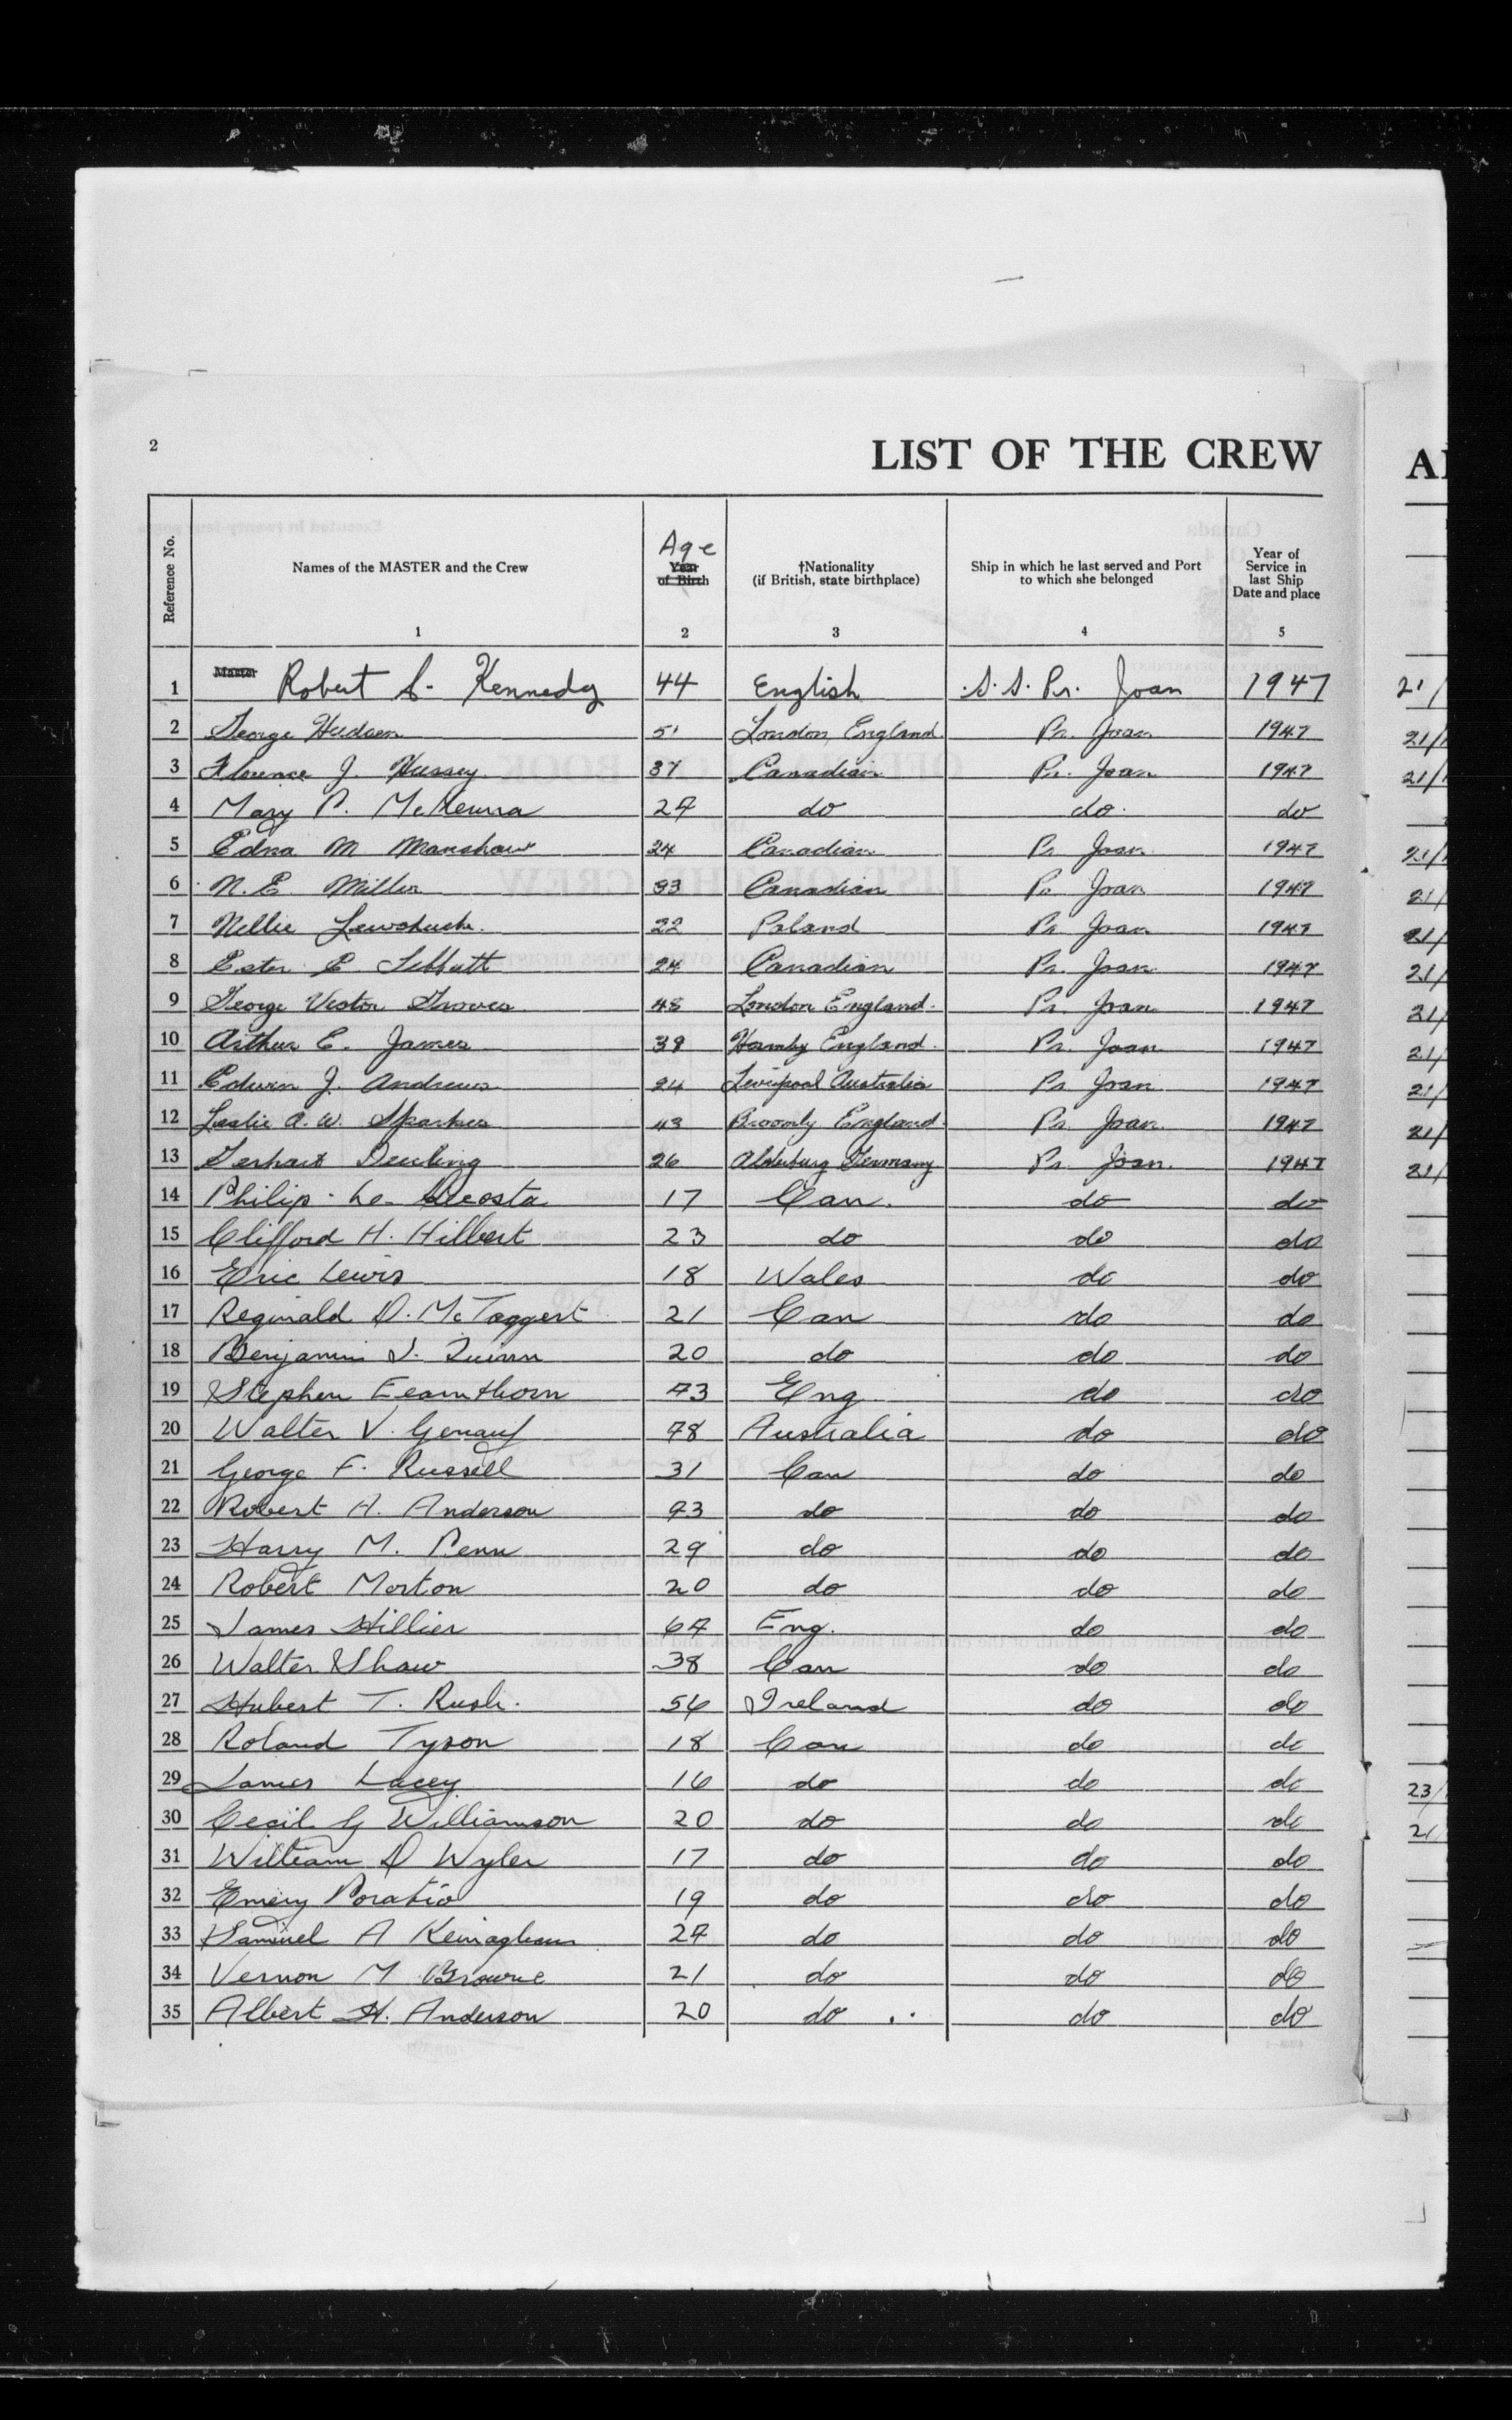 2
LIST OF THE CREW
Reference No.
Names of the MASTER and the Crew
Age
Year of Birth
†Nationality
(if British, state birthplace)
Ship in which he last served and Port
to which she belonged
Year of
Service in
last Ship
Date and place
1 2 3 4 5
1 Master Robert S. Kennedy 44 English S.S. Pr. Joan 1947 21/
2 George Hudson 51 London, England. Pr. Joan 1947 21/
3 Florence J. Hussey 37 Canadian Pr. Joan 1947 21/
4 Mary P. McKenna 24 do do. do
5 Edna M Manshaw 24 Canadian Pr Joan 1947 21/
6 N.E. Miller 33 Canadian Pr Joan 1947 21/
7 Nellie 22 Poland Pr Joan 1947 21/
8 Ester E. 24 Canadian Pr. Joan 1947 21/
9 George Victor Groves 48 London England. Pr. Joan 1947 21/
10 Arthur E. James 39 England. Pr. Joan 1947 21/
11 Edwin J. Andrews 24 Liverpool Australia Pr Joan 1947 21/
12 Leslie A. W. Sparkes 43 England. Pr Joan. 1947 21/
13 Gerhart 26 Germany Pr. Joan. 1947 21/
14 Philip 17 Can. do do
15 Clifford H. Hilbert 23 do do do
16 Eric Lewis 18 Wales do do
17 Reginald D. McTaggert 21 Can do do
18 Benjamin J. Quinn 20 do do do
19 Stephen 43 Eng. do do
20 Walter V. 48 Australia do do
21 George F. Russell 31 Can do do
22 Robert A. Anderson 43 do do do
23 Harry M. Penn 29 do do do
24 Robert Morton 20 do do do
25 James Hillier 64 Eng. do do
26 Walter Shaw 38 Can do do
27 Hubert T. Rush. 56 Ireland do do
28 Roland Tyson 18 Can do do
29 James Lacey 16 do do do 23/
30 Cecil G Williamson 20 do do do 21
31 William D Wyler 17 do do do
32 Emery 19 do do do
33 Samuel A 24 do do do
34 Vernon M Browne 21 do do do
35 Albert H. Anderson 20 do do do